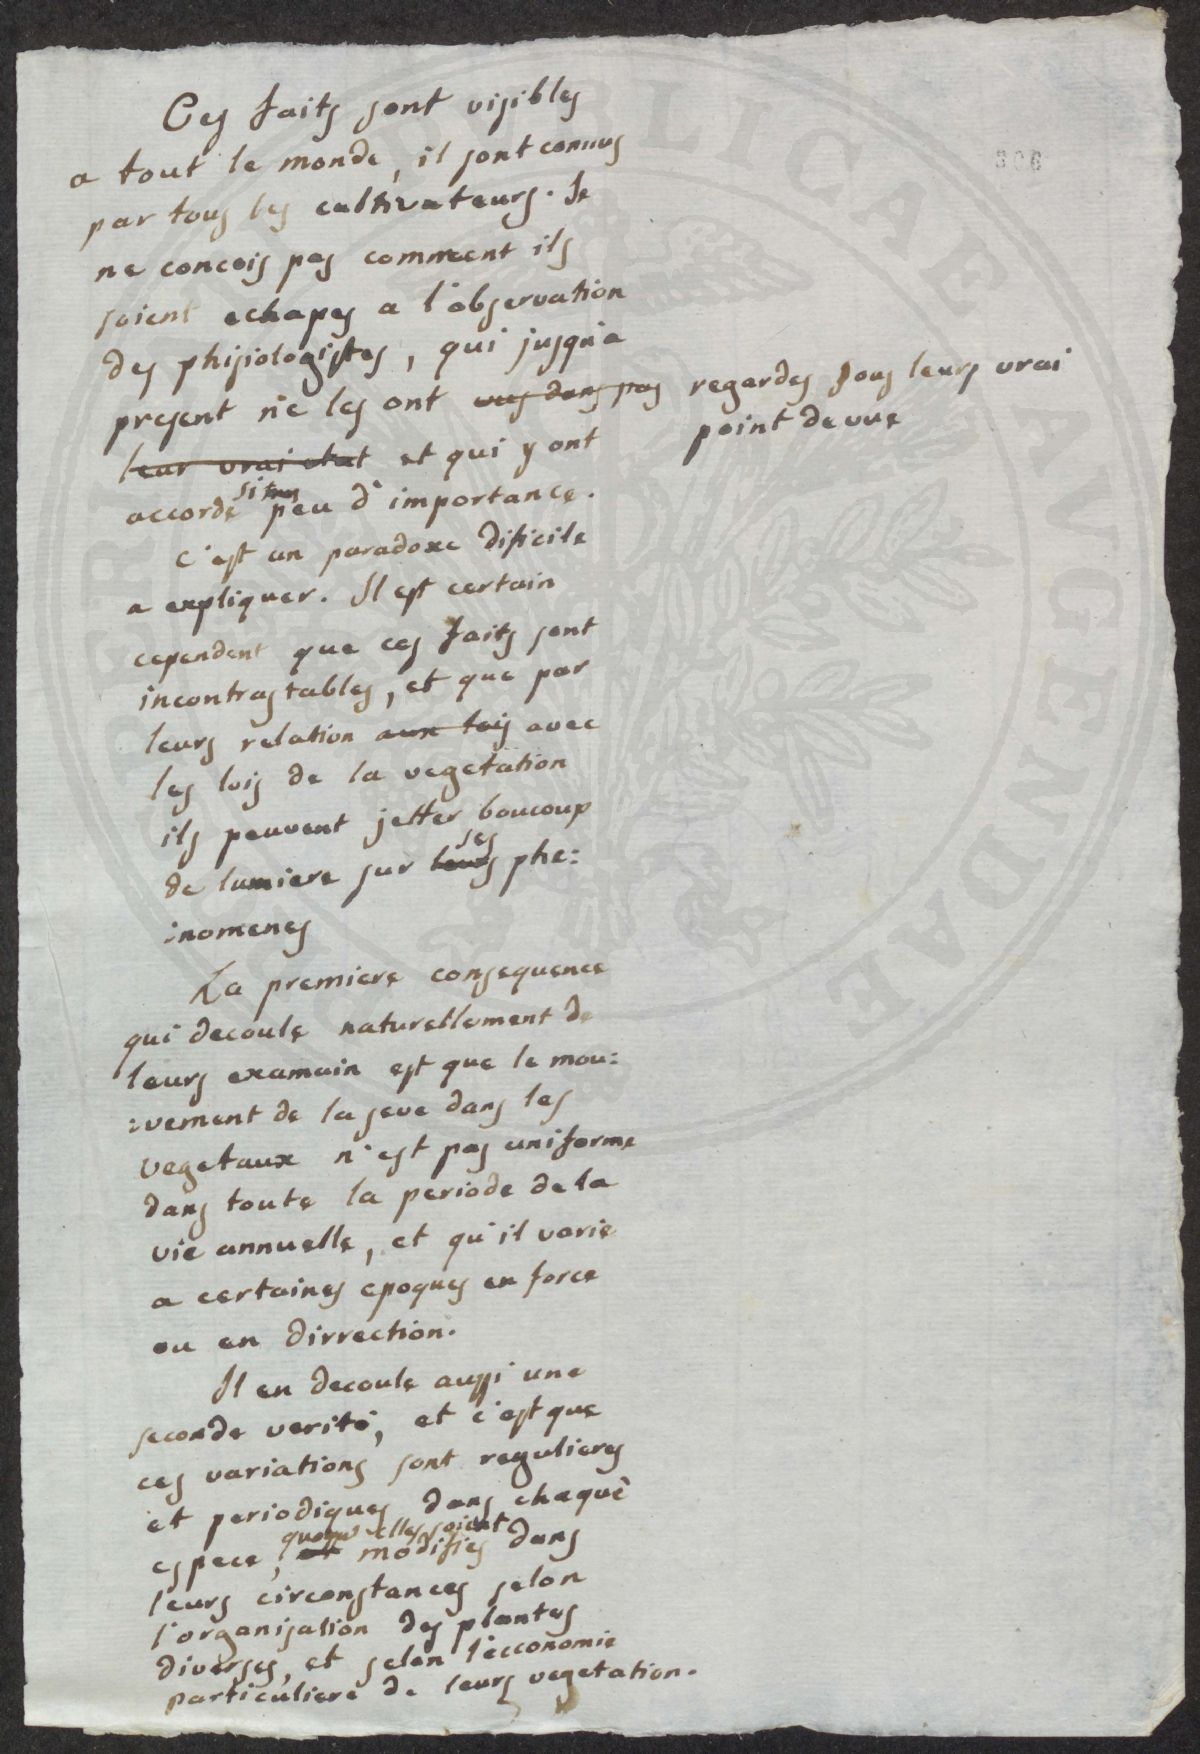 306
Ces faits sont visibles
a tout le monde, il sont connus
par tous les cultivateurs. Je
ne concois pas comment ils
soient echapes a l'observation
des phisiologistes, qui jusqu'a
present ne les ont vus dans pas regardes sous leurs vrai
point de vue
leur vrai etat et qui y ont
accorde si peu d'importance.
C'est un paradoxe dificile
a expliquer. Il est certain
cependent que ces faits sont
incontrastables, et que par
leurs relation aux lois avec
les lois de la vegetation
ils peuvent jetter boucoup
de lumiere sur leurs ses phe:
:nomenes
La premiere consequence
qui decoule naturellement de
leurs examain est que le mou:
:vement de la seve dans les
vegetaux n'est pas uniforme
dans toute la periode de la
vie annuelle, et qu'il varie
a certaines epoques en force
ou en dirrection.
Il en decoule aussi une
seconde verité, et c'est que
ces variations sont regulieres
et periodiques dans chaque
espece, quoqu'elles soient modifies dans
leurs circonstances selon
l'organisation des plantes
diverses, et selon l'ecconomie
particuliere de leurs vegetation.